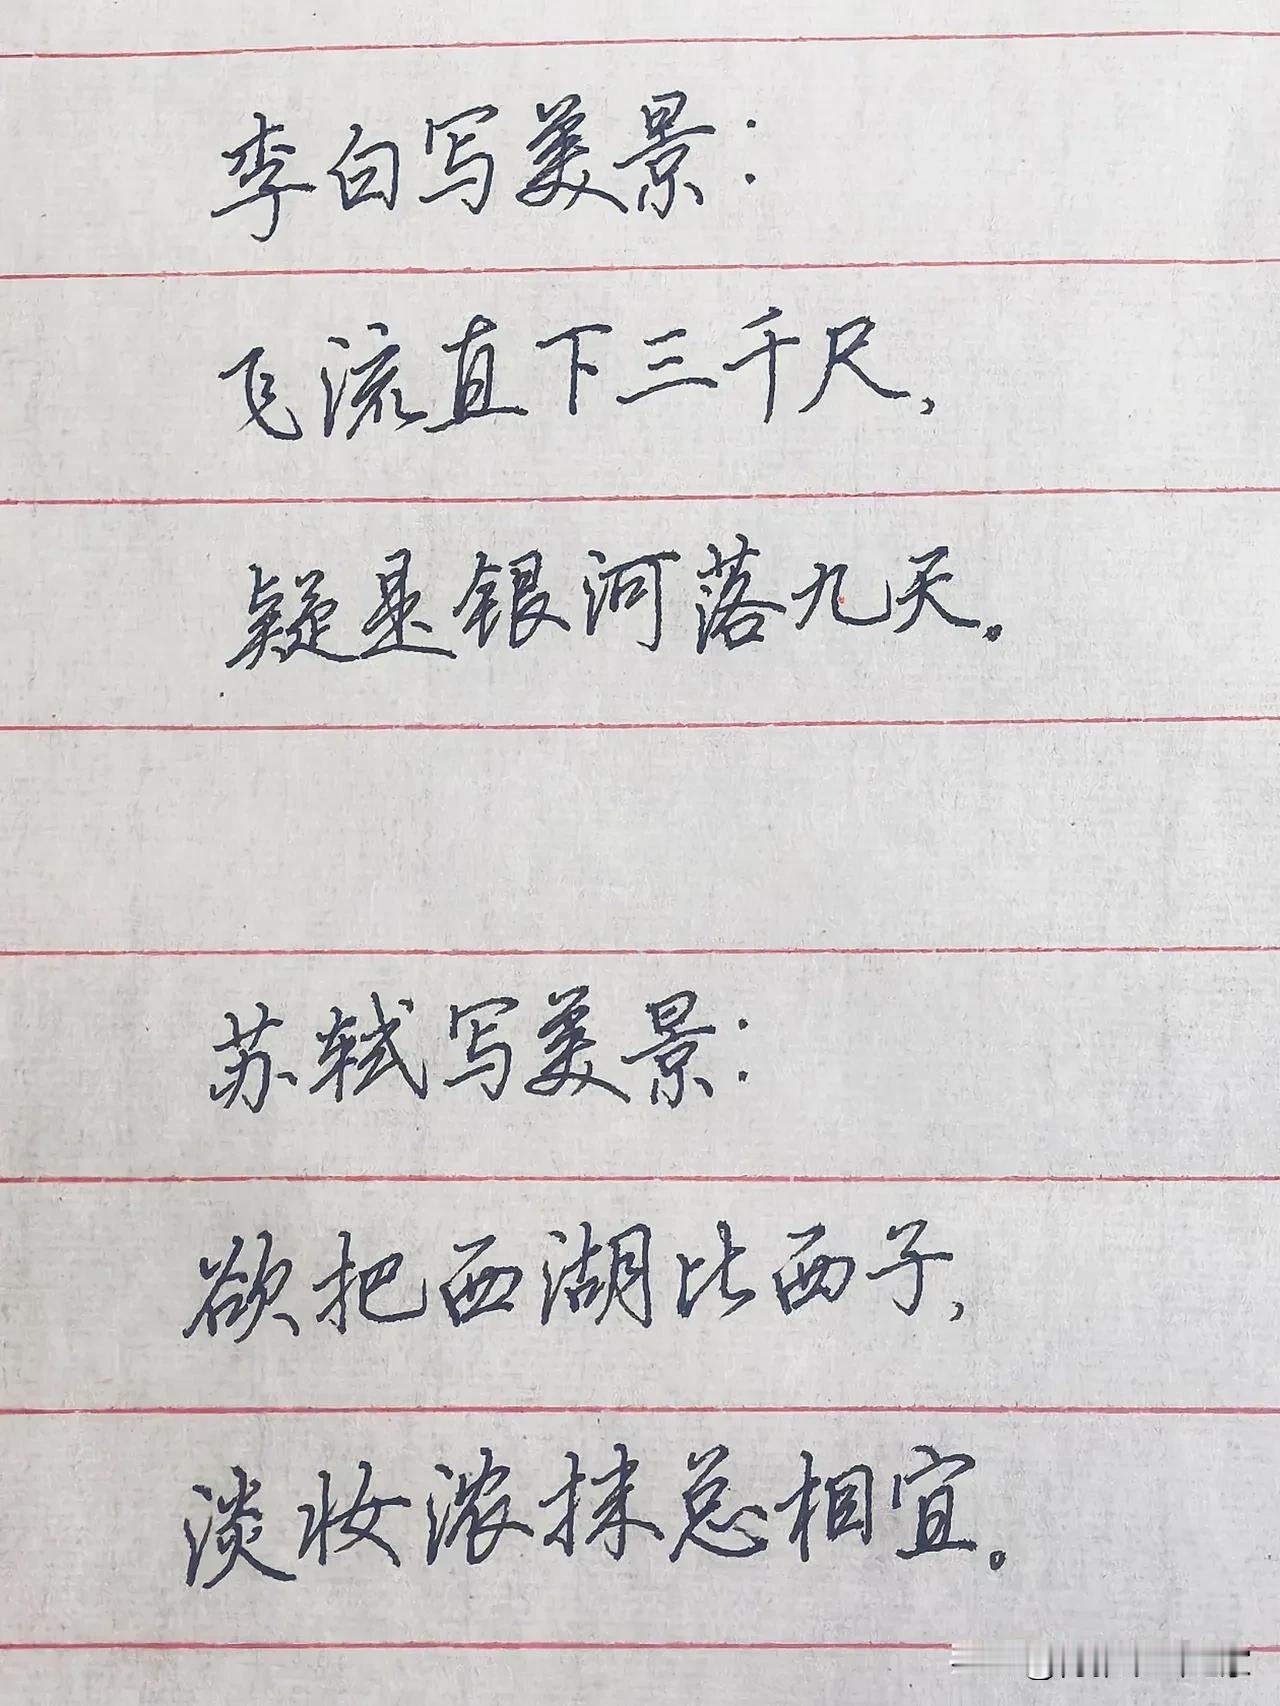 李白写美景：
飞流直下三千尺，
疑是银河落九天。
苏轼写美景：
欲把西湖比西子，
淡妆浓抹总相宜。